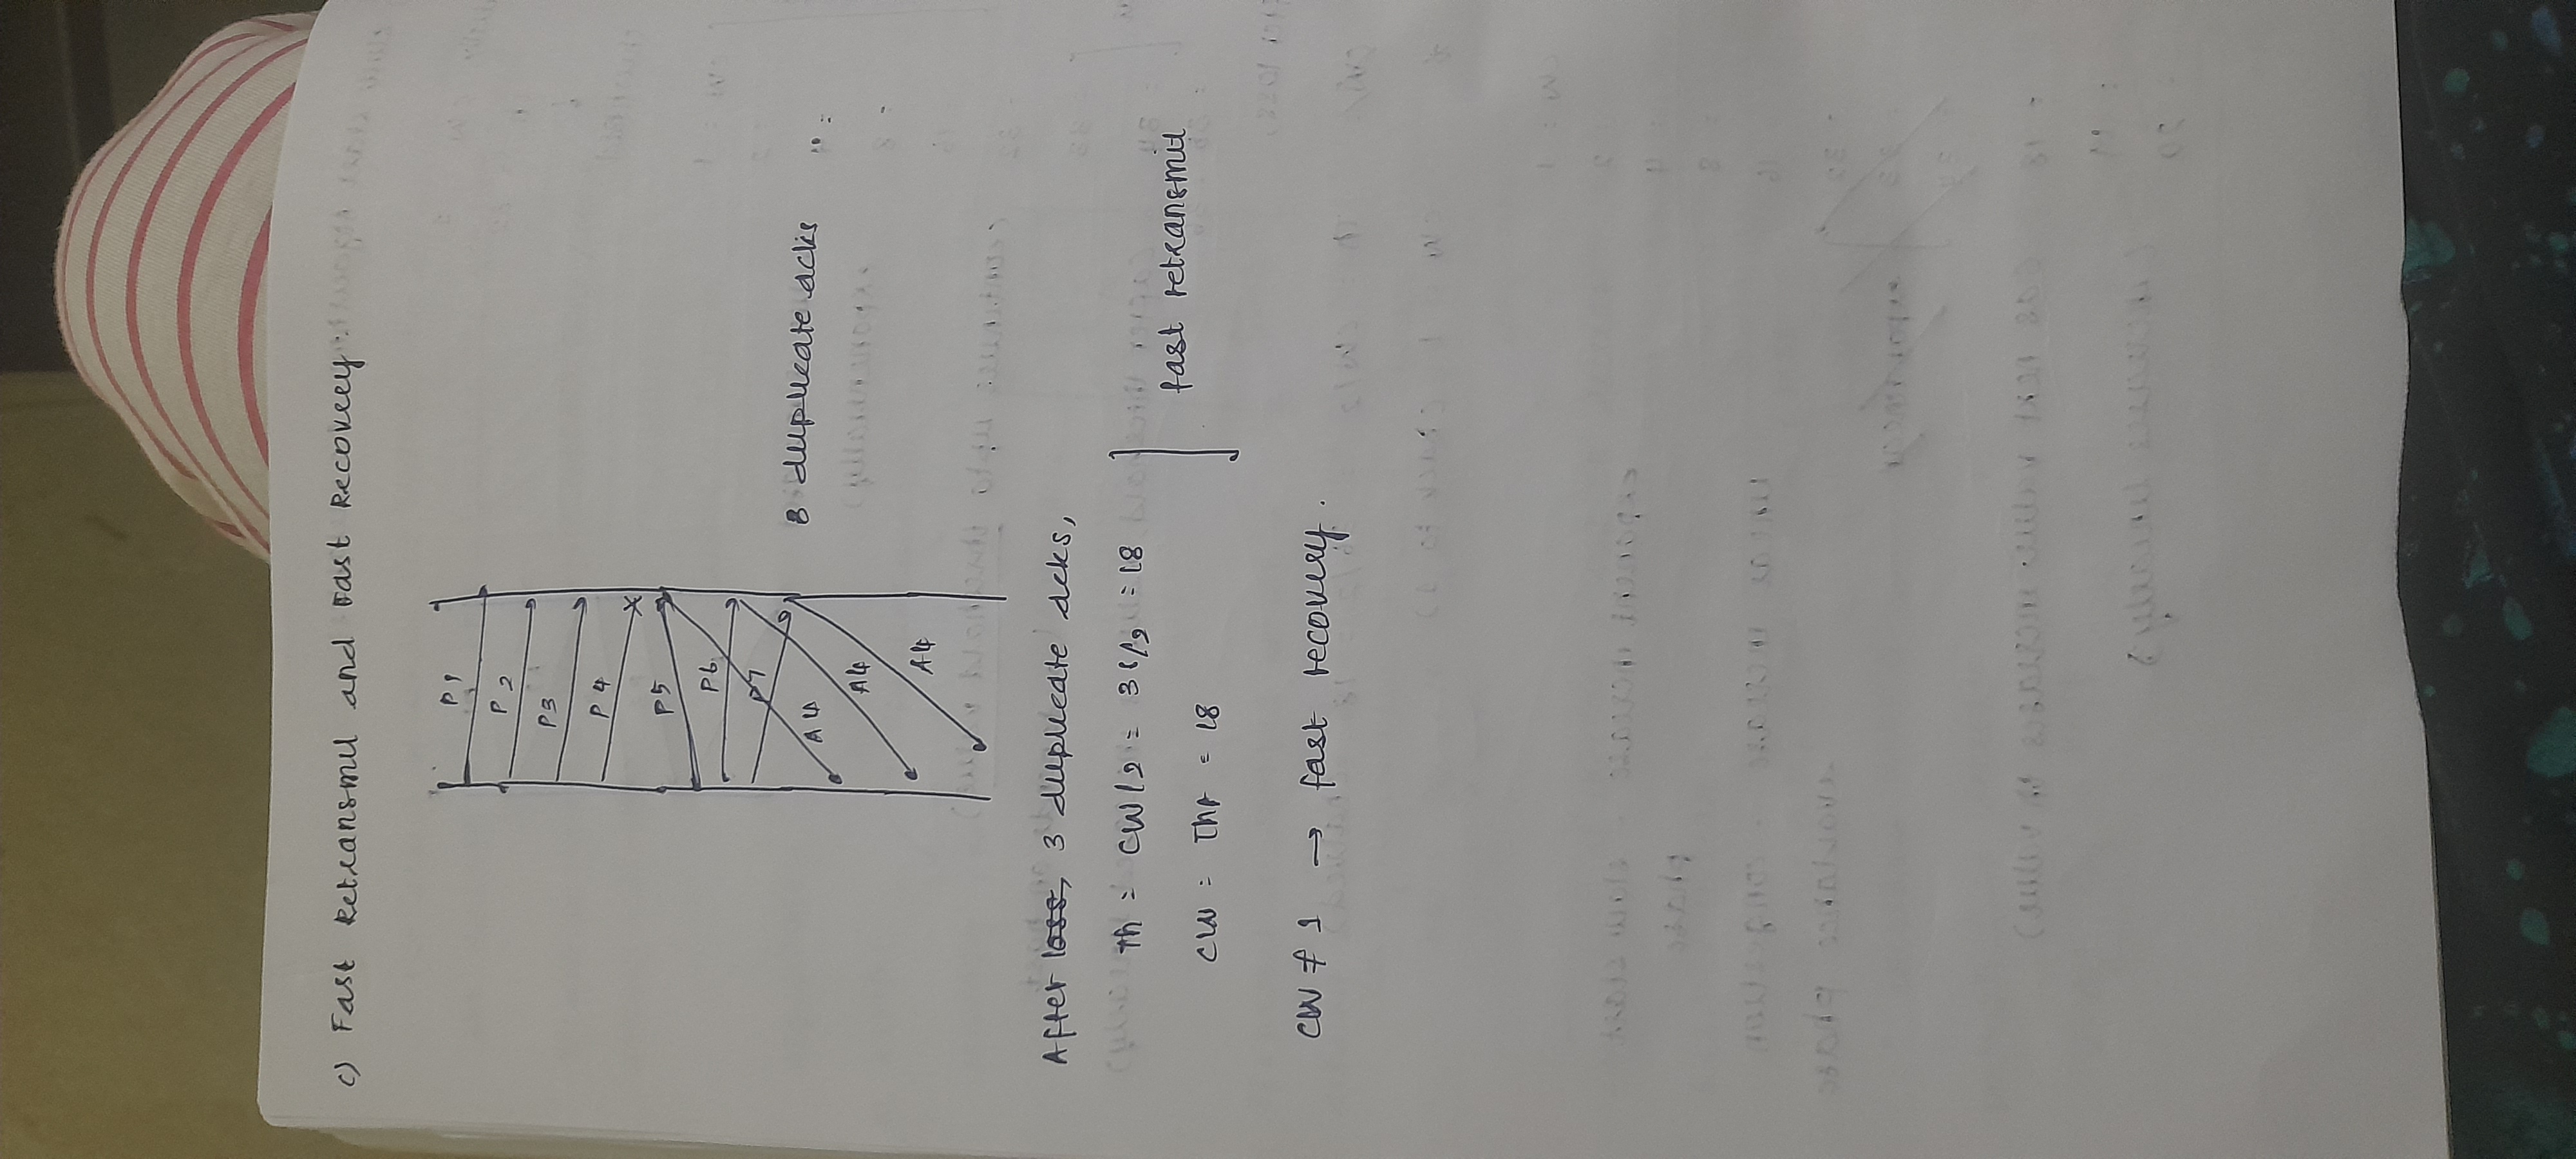 c) Fast Retransmit and Fast Recovery.
P1
P2
P3
P4
X
P5
P6
P7
A4
3 duplicate acks
A4
A4
After loss, 3 duplicate acks,
Th = CW/2 = 36/2 = 18
fast retransmit
CW = Thr = 18
CW ≠ 1 → fast recovery.